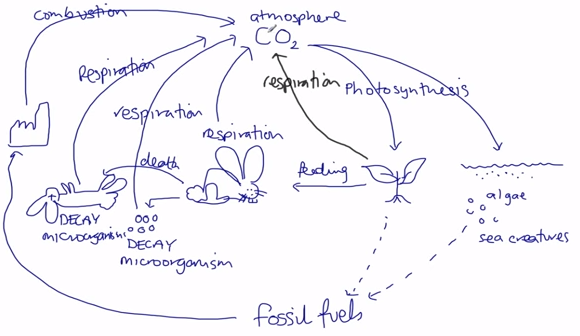 combustion
atmosphere
CO₂
Respiration
respiration
respiration
respiration
Photosynthesis
death
feeding
DECAY
microorganism
DECAY
microorganism
algae
sea creatures
fossil fuels